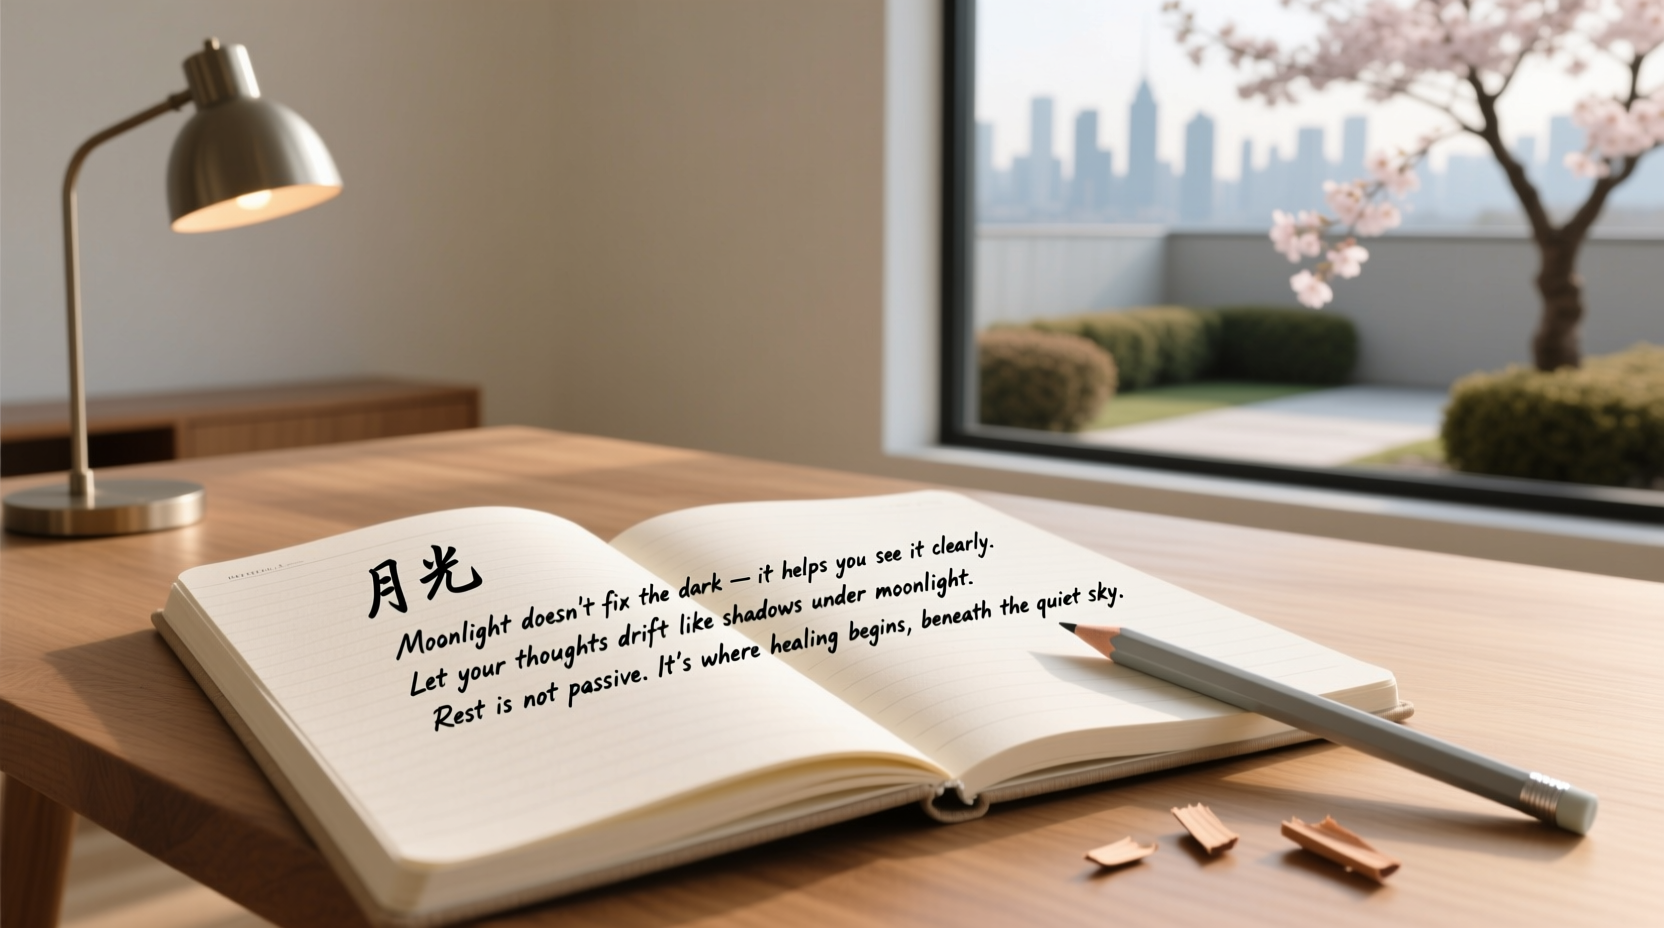 月光
Moonlight doesn't fix the dark — it helps you see it clearly.
Let your thoughts drift like shadows under moonlight.
Rest is not passive. It's where healing begins, beneath the quiet sky.